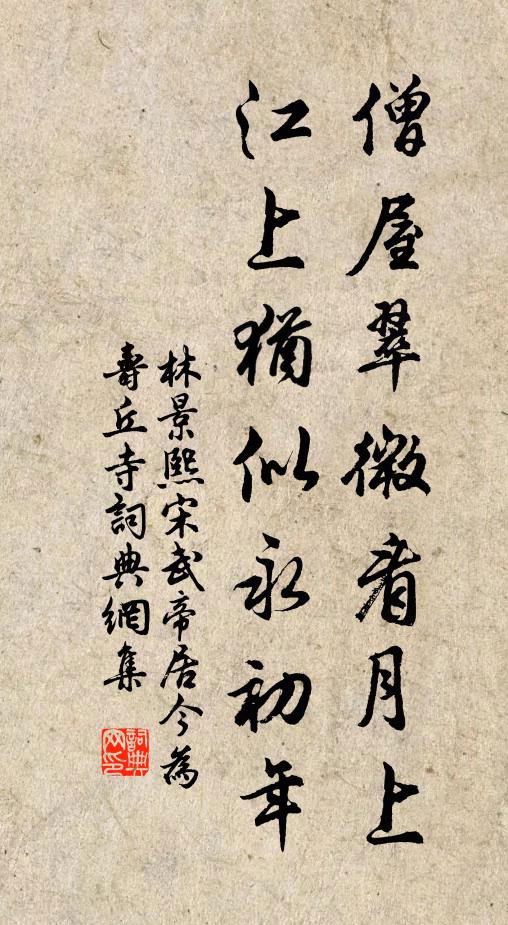 僧屋翠微看月上
江上猶似永初年
林景熙宋武帝居今為
壽丘寺詞典網集
詞典網印